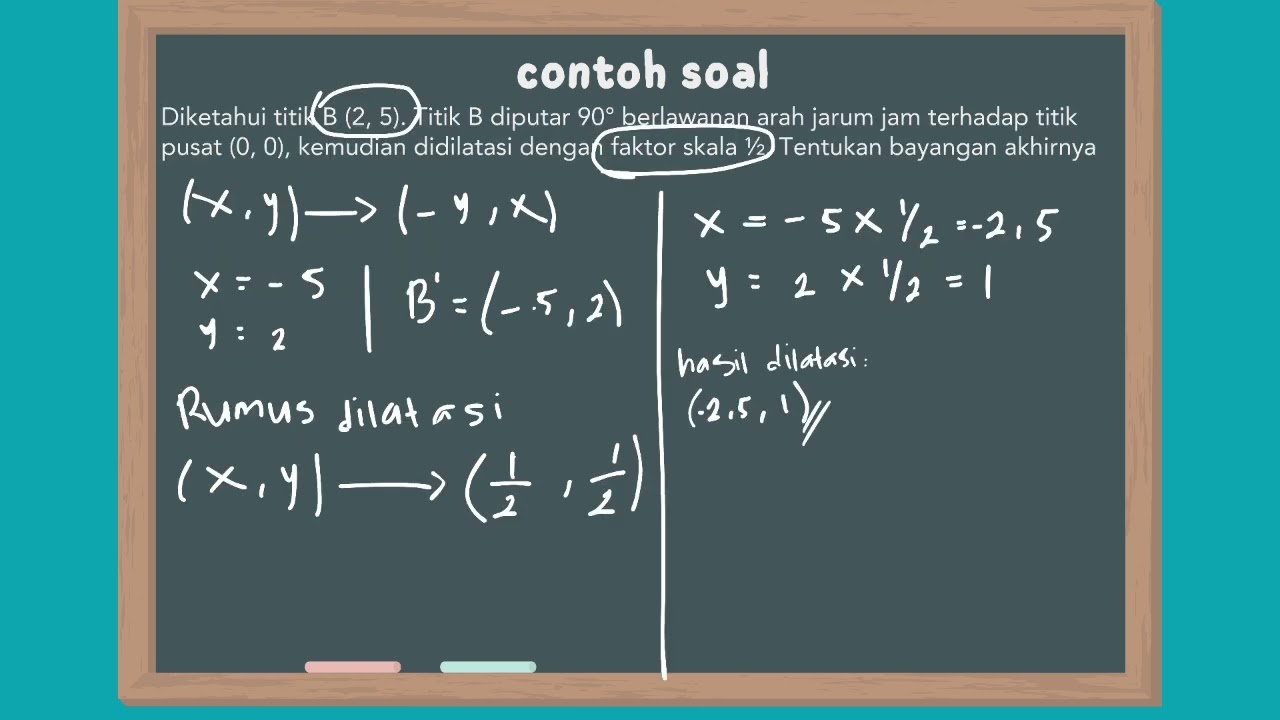 contoh soal
Diketahui titik B (2, 5). Titik B diputar 90° berlawanan arah jarum jam terhadap titik
pusat (0, 0), kemudian didilatasi dengan faktor skala ½. Tentukan bayangan akhirnya
(x, y) → (-y, x)
x = -5
y = 2
B' = (-5, 2)
Rumus dilatasi
(x, y) → (1/2, 1/2)
x = -5 x 1/2 = -2,5
y = 2 x 1/2 = 1
hasil dilatasi:
(-2,5, 1)//